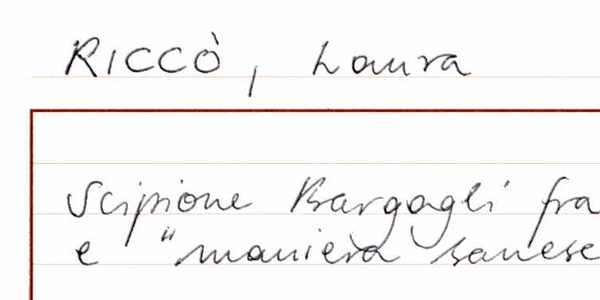 RICCÒ, Laura
Scipione Bargagli fra
e "maniera sanese